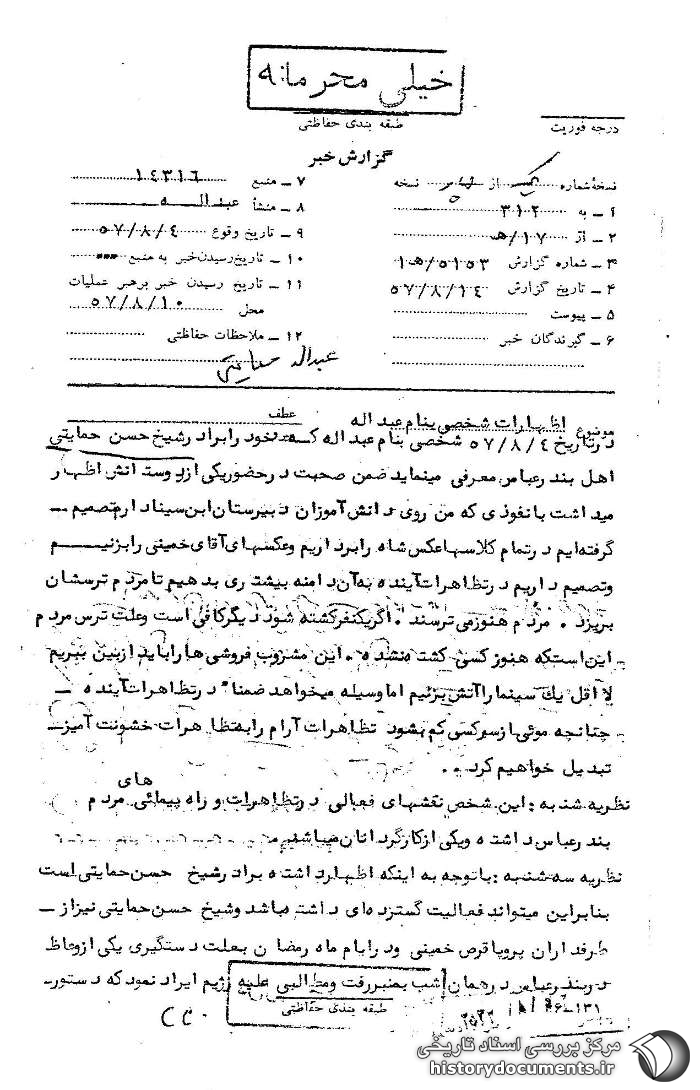 خیلی محرمانه
طبقه بندی حفاظتی
درجه فوریت
گزارش خبر
نسخهٔ شماره یک از نسخه
۱ـ به ۳۱۲
۲ـ از ۱۷/هـ
۳ـ شماره گزارش ۵۱۵۳/هـ۱
۴ـ تاریخ گزارش ۵۷/۸/۱٤
۵ـ پیوست
۶ـ گیرندگان خبر
۷ـ منبع ۱٤۳۱٦
۸ـ منشأ عبداله
۹ـ تاریخ وقوع ۵۷/۸/٤
۱۰ـ تاریخ رسیدن خبر به منبع
۱۱ـ تاریخ رسیدن خبر برهبر عملیات
محل ۵۷/۸/۱۰
۱۲ـ ملاحظات حفاظتی
عبداله حمایتی
موضوع اظهارات شخصی بنام عبداله عطف
درتاریخ ۵۷/۸/٤ شخصی بنام عبداله که خود را برادر شیخ حسن حمایتی
اهل بندرعباس معرفی مینماید ضمن صحبت درحضوریکی ازدوستانش اظهار
میداشت با نفوذی که من روی دانش آموزان دبیرستان ابن سینا دارم تصمیم ـ
گرفته‌ایم درتمام کلاسها عکس شاه را برداریم وعکسهای آقای خمینی را بزنیم
وتصمیم داریم درتظاهرات آینده به آن دامنه بیشتری بدهیم تا مردم ترسشان
بریزد . مردم هنوزمی ترسند . اگریکنفرکشته شود دیگرکافی است وعلت ترس مردم
این استکه هنوز کسی کشته نشده . این مشروب فروشی ها را باید ازبین ببریم
لااقل یك سینما را آتش بزنیم اما وسیله میخواهد ضمناً درتظاهرات آینده ـ
چنانچه موئی ازسرکسی کم بشود تظاهرات آرام را بتظاهرات خشونت آمیز ـ
تبدیل خواهیم کرد . .
نظریه شنبه : این شخص نقشهای فعالی درتظاهرات و راه پیمائی های مردم
بندرعباس داشته ویکی ازکارگردانان میباشد
نظریه سه شنبه : با توجه به اینکه اظهارداشته برادر شیخ حسن حمایتی است
بنابراین میتواند فعالیت گسترده‌ای داشته باشد وشیخ حسن حمایتی نیزاز ـ
طرفداران پروپاقرص خمینی ودرایام ماه رمضان بعلت دستگیری یکی ازوعاظ
دربندرعباس درهمان شب بمنبررفت ومطالبی علیه رژیم ایراد نمود که دستور ـ
طبقه بندی حفاظتی
مرکز بررسی اسناد تاریخی
historydocuments.ir